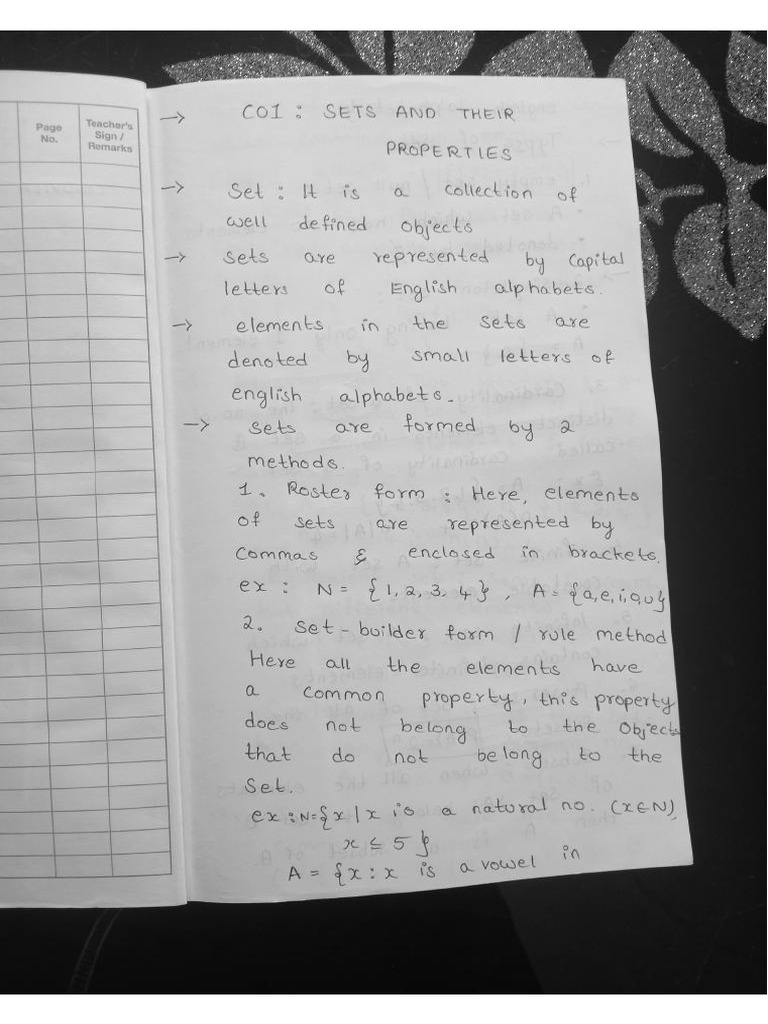 Page
No.
Teacher's
Sign /
Remarks
→ CO1 : SETS AND THEIR
PROPERTIES
→ Set : It is a collection of
well defined objects
→ sets are represented by Capital
letters of English alphabets.
→ elements in the sets are
denoted by small letters of
english alphabets.
→ sets are formed by 2
methods.
1. Roster form : Here, elements
of sets are represented by
commas & enclosed in brackets.
ex : N = {1, 2, 3, 4} , A = {a, e, i, o, u}
2. Set-builder form / rule method
Here all the elements have
a common property, this property
does not belong to the Objects
that do not belong to the
Set.
ex : N={x | x is a natural no. (x∈N),
x ≤ 5 }
A = {x : x is a vowel in